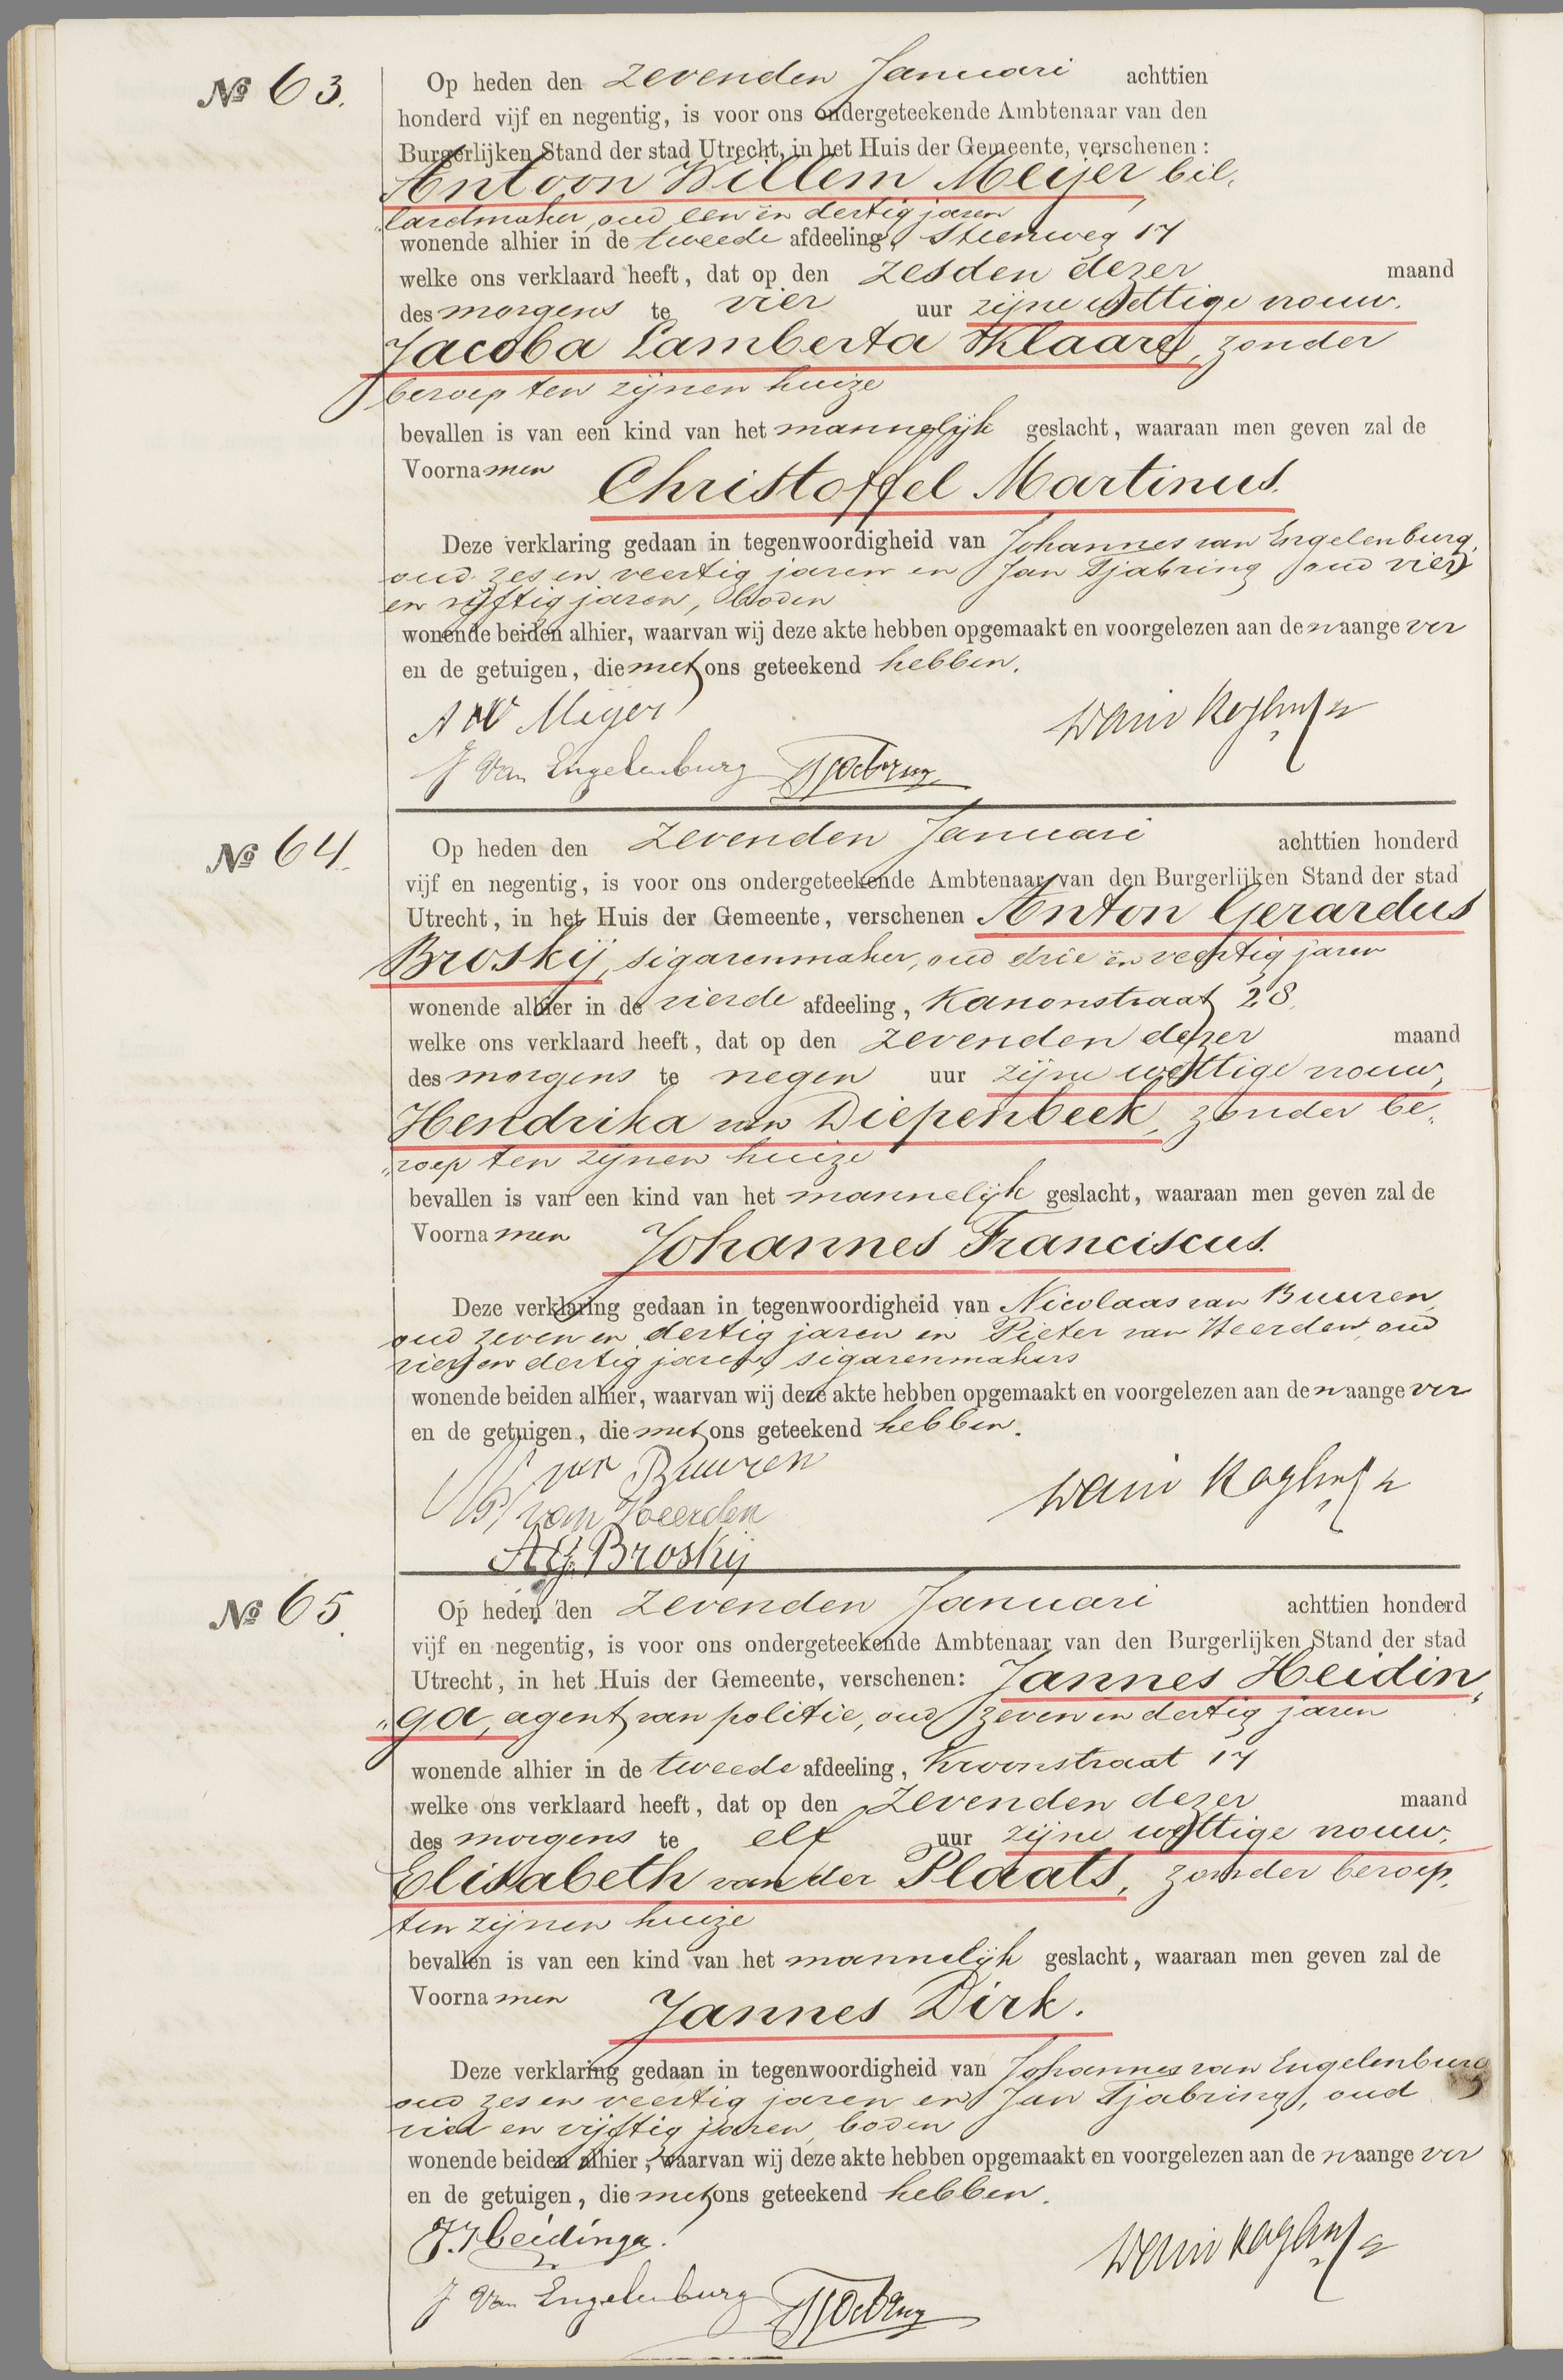 № 63.
Op heden den zevenden Januari achttien
honderd vijf en negentig, is voor ons ondergeteekende Ambtenaar van den
Burgerlijken Stand der stad Utrecht, in het Huis der Gemeente, verschenen :
Antoon Willem Meijer, bil-
lardmaker, oud een en dertig jaren
wonende alhier in de tweede afdeeling, Steenweg 17
welke ons verklaard heeft, dat op den zesden dezer maand
des morgens te vier uur zijne wettige vrouw.
Jacoba Lamberta Klaare, zonder
beroep ten zijnen huize
bevallen is van een kind van het mannelijk geslacht, waaraan men geven zal de
Voornamen Christoffel Martinus.
Deze verklaring gedaan in tegenwoordigheid van Johannes van Engelenburg,
oud zes en veertig jaren en Jan Tjabring oud vier
en vijftig jaren, boden
wonende beiden alhier, waarvan wij deze akte hebben opgemaakt en voorgelezen aan den aangever
en de getuigen, die met ons geteekend hebben.
A W Meijer
J van Engelenburg Tjabring
№ 64.
Op heden den zevenden Januari achttien honderd
vijf en negentig, is voor ons ondergeteekende Ambtenaar van den Burgerlijken Stand der stad
Utrecht, in het Huis der Gemeente, verschenen Anton Gerardus
Broskij, sigarenmaker, oud drie en veertig jaren
wonende alhier in de vierde afdeeling, Kanonstraat 28.
welke ons verklaard heeft, dat op den zevenden dezer maand
des morgens te negen uur zijne wettige vrouw,
Hendrika van Diepenbeek, zonder be-
"roep ten zijnen huize
bevallen is van een kind van het mannelijk geslacht, waaraan men geven zal de
Voornamen Johannes Franciscus.
Deze verklaring gedaan in tegenwoordigheid van Nicolaas van Buuren,
oud zeven en dertig jaren en Pieter van Heerden, oud
vier en dertig jaren, sigarenmakers
wonende beiden alhier, waarvan wij deze akte hebben opgemaakt en voorgelezen aan den aangever
en de getuigen, die met ons geteekend hebben.
N van Buuren
P van Heerden
A.G. Broskij
№ 65.
Op heden den zevenden Januari achttien honderd
vijf en negentig, is voor ons ondergeteekende Ambtenaar van den Burgerlijken Stand der stad
Utrecht, in het Huis der Gemeente, verschenen: Jannes Heidin-
"ga, agent van politie, oud zeven en dertig jaren
wonende alhier in de tweede afdeeling, Kroonstraat 17
welke ons verklaard heeft, dat op den zevenden dezer maand
des morgens te elf uur zijne wettige vrouw,
Elisabeth van der Plaats, zonder beroep,
ten zijnen huize
bevallen is van een kind van het mannelijk geslacht, waaraan men geven zal de
Voornamen Jannes Dirk.
Deze verklaring gedaan in tegenwoordigheid van Johannes van Engelenburg
oud zes en veertig jaren en Jan Tjabring, oud
vier en vijftig jaren, boden
wonende beiden alhier, waarvan wij deze akte hebben opgemaakt en voorgelezen aan den aangever
en de getuigen, die met ons geteekend hebben.
J. Heidinga.
J van Engelenburg Tjabring